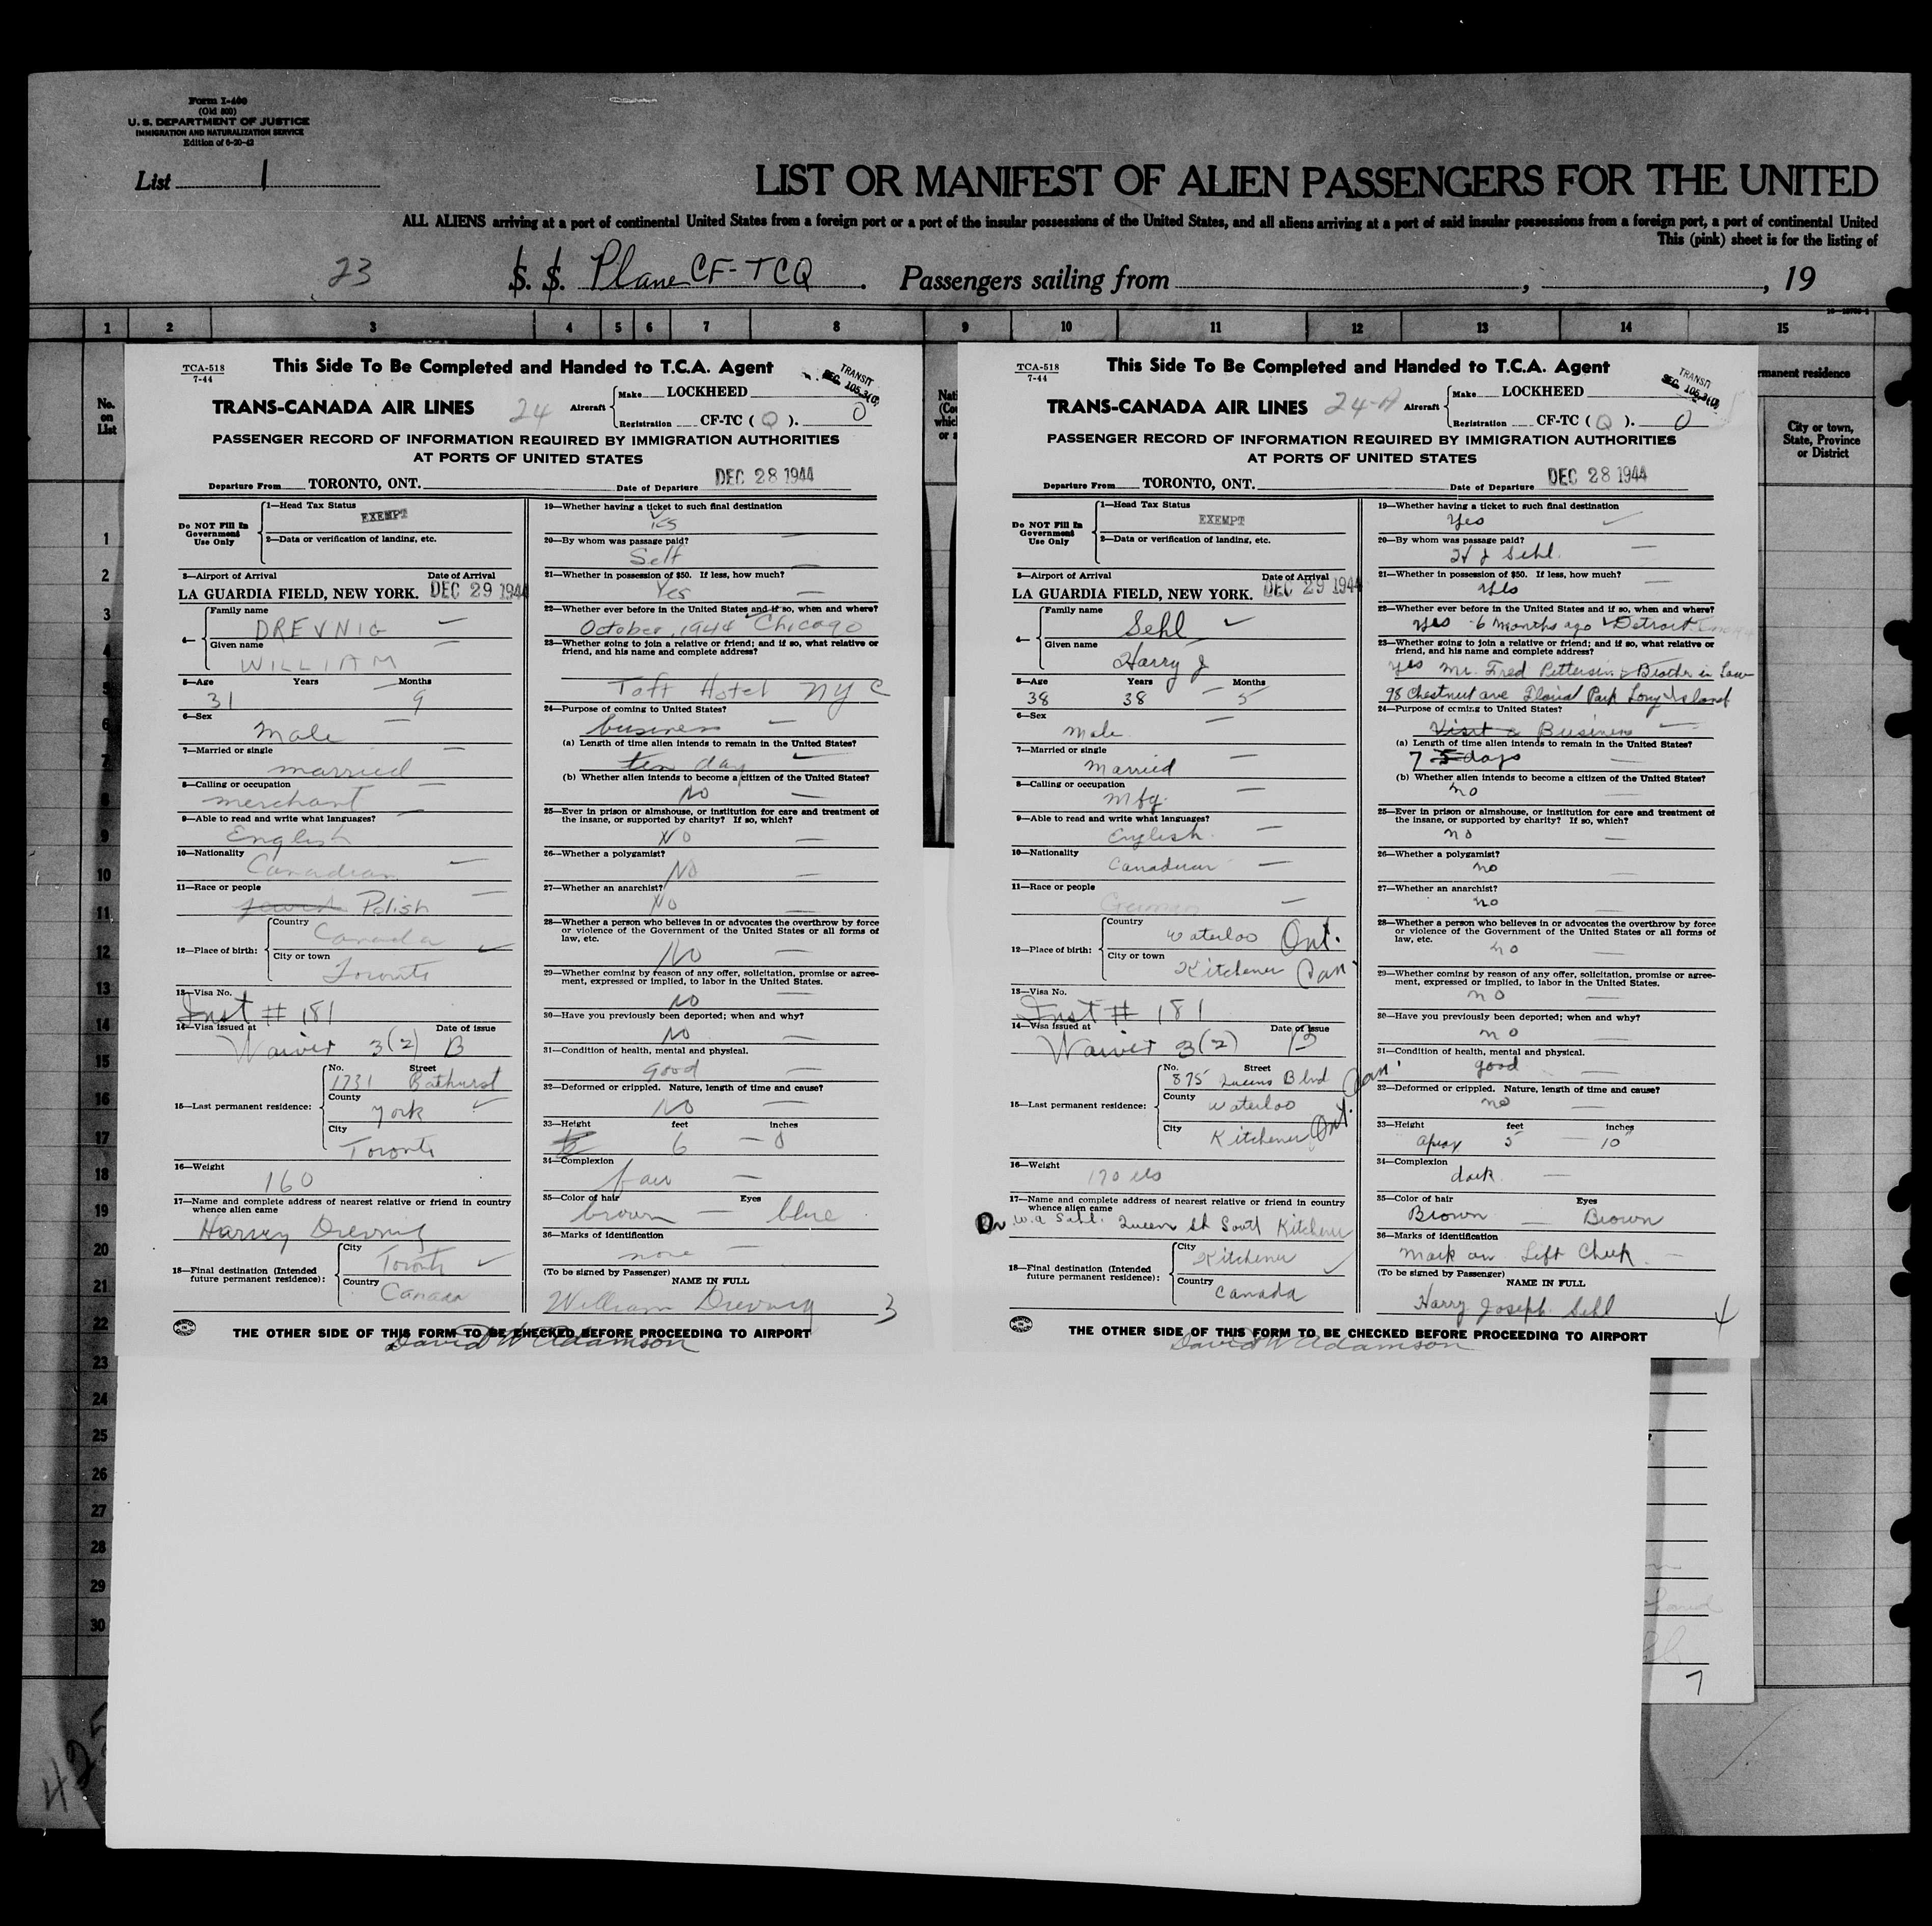 Form I-400
(Old 500)
U. S. DEPARTMENT OF JUSTICE
IMMIGRATION AND NATURALIZATION SERVICE
Edition of 6-20-42
List 1
LIST OR MANIFEST OF ALIEN PASSENGERS FOR THE UNITED
ALL ALIENS arriving at a port of continental United States from a foreign port or a port of the insular possessions of the United States, and all aliens arriving at a port of said insular possessions from a foreign port, a port of continental United
This (pink) sheet is for the listing of
23 S. S. Plane CF-TCQ. Passengers sailing from , , 19
1 2 3 4 5 6 7 8 9 10 11 12 13 14 15
No. on List
rmanent residence
City or town, State, Province or District
TCA-518
7-44
This Side To Be Completed and Handed to T.C.A. Agent
TRANSIT
SEC. 105.3(0)
TRANS-CANADA AIR LINES 24 Aircraft
Make LOCKHEED
Registration CF-TC ( Q ). 0
PASSENGER RECORD OF INFORMATION REQUIRED BY IMMIGRATION AUTHORITIES
AT PORTS OF UNITED STATES
Departure From TORONTO, ONT. Date of Departure DEC 28 1944
Do NOT Fill In Government Use Only
1—Head Tax Status
EXEMPT
2—Data or verification of landing, etc.
3—Airport of Arrival Date of Arrival
LA GUARDIA FIELD, NEW YORK. DEC 29 1944
4—
Family name
DREVNIG
Given name
WILLIAM
5—Age Years Months
31 9
6—Sex
Male
7—Married or single
married
8—Calling or occupation
merchant
9—Able to read and write what languages?
English
10—Nationality
Canadian
11—Race or people
Jewish Polish
12—Place of birth:
Country
Canada
City or town
Toronto
13—Visa No.
Inst # 181
14—Visa issued at Date of issue
Waiver 3(2) B
15—Last permanent residence:
No. Street
1731 Bathurst
County
York
City
Toronto
16—Weight
160
17—Name and complete address of nearest relative or friend in country
whence alien came
Harvey Drevnig
18—Final destination (Intended
future permanent residence):
City
Toronto
Country
Canada
19—Whether having a ticket to such final destination
Yes
20—By whom was passage paid?
Self
21—Whether in possession of $50. If less, how much?
Yes
22—Whether ever before in the United States and if so, when and where?
October, 1944 Chicago
23—Whether going to join a relative or friend; and if so, what relative or
friend, and his name and complete address?
Taft Hotel NYC
24—Purpose of coming to United States?
business
(a) Length of time alien intends to remain in the United States?
ten day
(b) Whether alien intends to become a citizen of the United States?
NO
25—Ever in prison or almshouse, or institution for care and treatment of
the insane, or supported by charity? If so, which?
NO
26—Whether a polygamist?
NO
27—Whether an anarchist?
NO
28—Whether a person who believes in or advocates the overthrow by force
or violence of the Government of the United States or all forms of
law, etc.
NO
29—Whether coming by reason of any offer, solicitation, promise or agree-
ment, expressed or implied, to labor in the United States.
NO
30—Have you previously been deported; when and why?
NO
31—Condition of health, mental and physical.
Good
32—Deformed or crippled. Nature, length of time and cause?
NO
33—Height feet inches
6 — 0
34—Complexion
fair
35—Color of hair Eyes
brown — blue
36—Marks of identification
none
(To be signed by Passenger) NAME IN FULL
William Drevnig 3
THE OTHER SIDE OF THIS FORM TO BE CHECKED BEFORE PROCEEDING TO AIRPORT
David W Adamson
TCA-518
7-44
This Side To Be Completed and Handed to T.C.A. Agent
TRANSIT
SEC. 105.3(0)
TRANS-CANADA AIR LINES 24-A Aircraft
Make LOCKHEED
Registration CF-TC ( Q ). 0
PASSENGER RECORD OF INFORMATION REQUIRED BY IMMIGRATION AUTHORITIES
AT PORTS OF UNITED STATES
Departure From TORONTO, ONT. Date of Departure DEC 28 1944
Do NOT Fill In Government Use Only
1—Head Tax Status
EXEMPT
2—Data or verification of landing, etc.
3—Airport of Arrival Date of Arrival
LA GUARDIA FIELD, NEW YORK. DEC 29 1944
4—
Family name
Sehl
Given name
Harry J
5—Age Years Months
38 38 5
6—Sex
Male
7—Married or single
Married
8—Calling or occupation
Mfg.
9—Able to read and write what languages?
English
10—Nationality
Canadian
11—Race or people
German
12—Place of birth:
Country
Waterloo Ont.
City or town
Kitchener Can.
13—Visa No.
Inst # 181
14—Visa issued at Date of issue
Waiver 3(2) B
15—Last permanent residence:
No. Street
875 Queens Blvd Can.
County
Waterloo
City
Kitchener Ont.
16—Weight
170 lbs
17—Name and complete address of nearest relative or friend in country
whence alien came
W.A Sehl. Queen St South Kitchener
18—Final destination (Intended
future permanent residence):
City
Kitchener
Country
Canada
19—Whether having a ticket to such final destination
Yes
20—By whom was passage paid?
H J Sehl.
21—Whether in possession of $50. If less, how much?
Yes
22—Whether ever before in the United States and if so, when and where?
Yes 6 Months ago Detroit
23—Whether going to join a relative or friend; and if so, what relative or
friend, and his name and complete address?
Yes Mr. Fred Petterson Brother in Law
98 Chestnut ave Floral Park Long Island
24—Purpose of coming to United States?
Visit & Business
(a) Length of time alien intends to remain in the United States?
7 5 days
(b) Whether alien intends to become a citizen of the United States?
no
25—Ever in prison or almshouse, or institution for care and treatment of
the insane, or supported by charity? If so, which?
no
26—Whether a polygamist?
no
27—Whether an anarchist?
no
28—Whether a person who believes in or advocates the overthrow by force
or violence of the Government of the United States or all forms of
law, etc.
no
29—Whether coming by reason of any offer, solicitation, promise or agree-
ment, expressed or implied, to labor in the United States.
no
30—Have you previously been deported; when and why?
no
31—Condition of health, mental and physical.
good
32—Deformed or crippled. Nature, length of time and cause?
no
33—Height feet inches
aprox 5 — 10"
34—Complexion
dark
35—Color of hair Eyes
Brown — Brown
36—Marks of identification
Mark on Left Cheek
(To be signed by Passenger) NAME IN FULL
Harry Joseph Sehl 4
THE OTHER SIDE OF THIS FORM TO BE CHECKED BEFORE PROCEEDING TO AIRPORT
David W Adamson
1
2
3
4
5
6
7
8
9
10
11
12
13
14
15
16
17
18
19
20
21
22
23
24
25
26
27
28
29
30
7
425